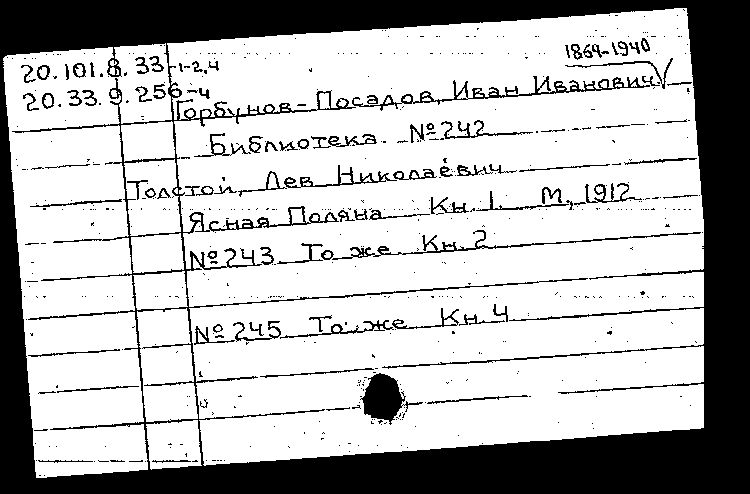 1864-1940
20.101.8.33-1-2,4
20.33.9.256-4
Горбунов-Посадов, Иван Иванович
Библиотека. №242
Толстой, Лев Николаевич
Ясная Поляна Кн. 1. М, 1912
№243 То же Кн. 2
№245 То же Кн. 4